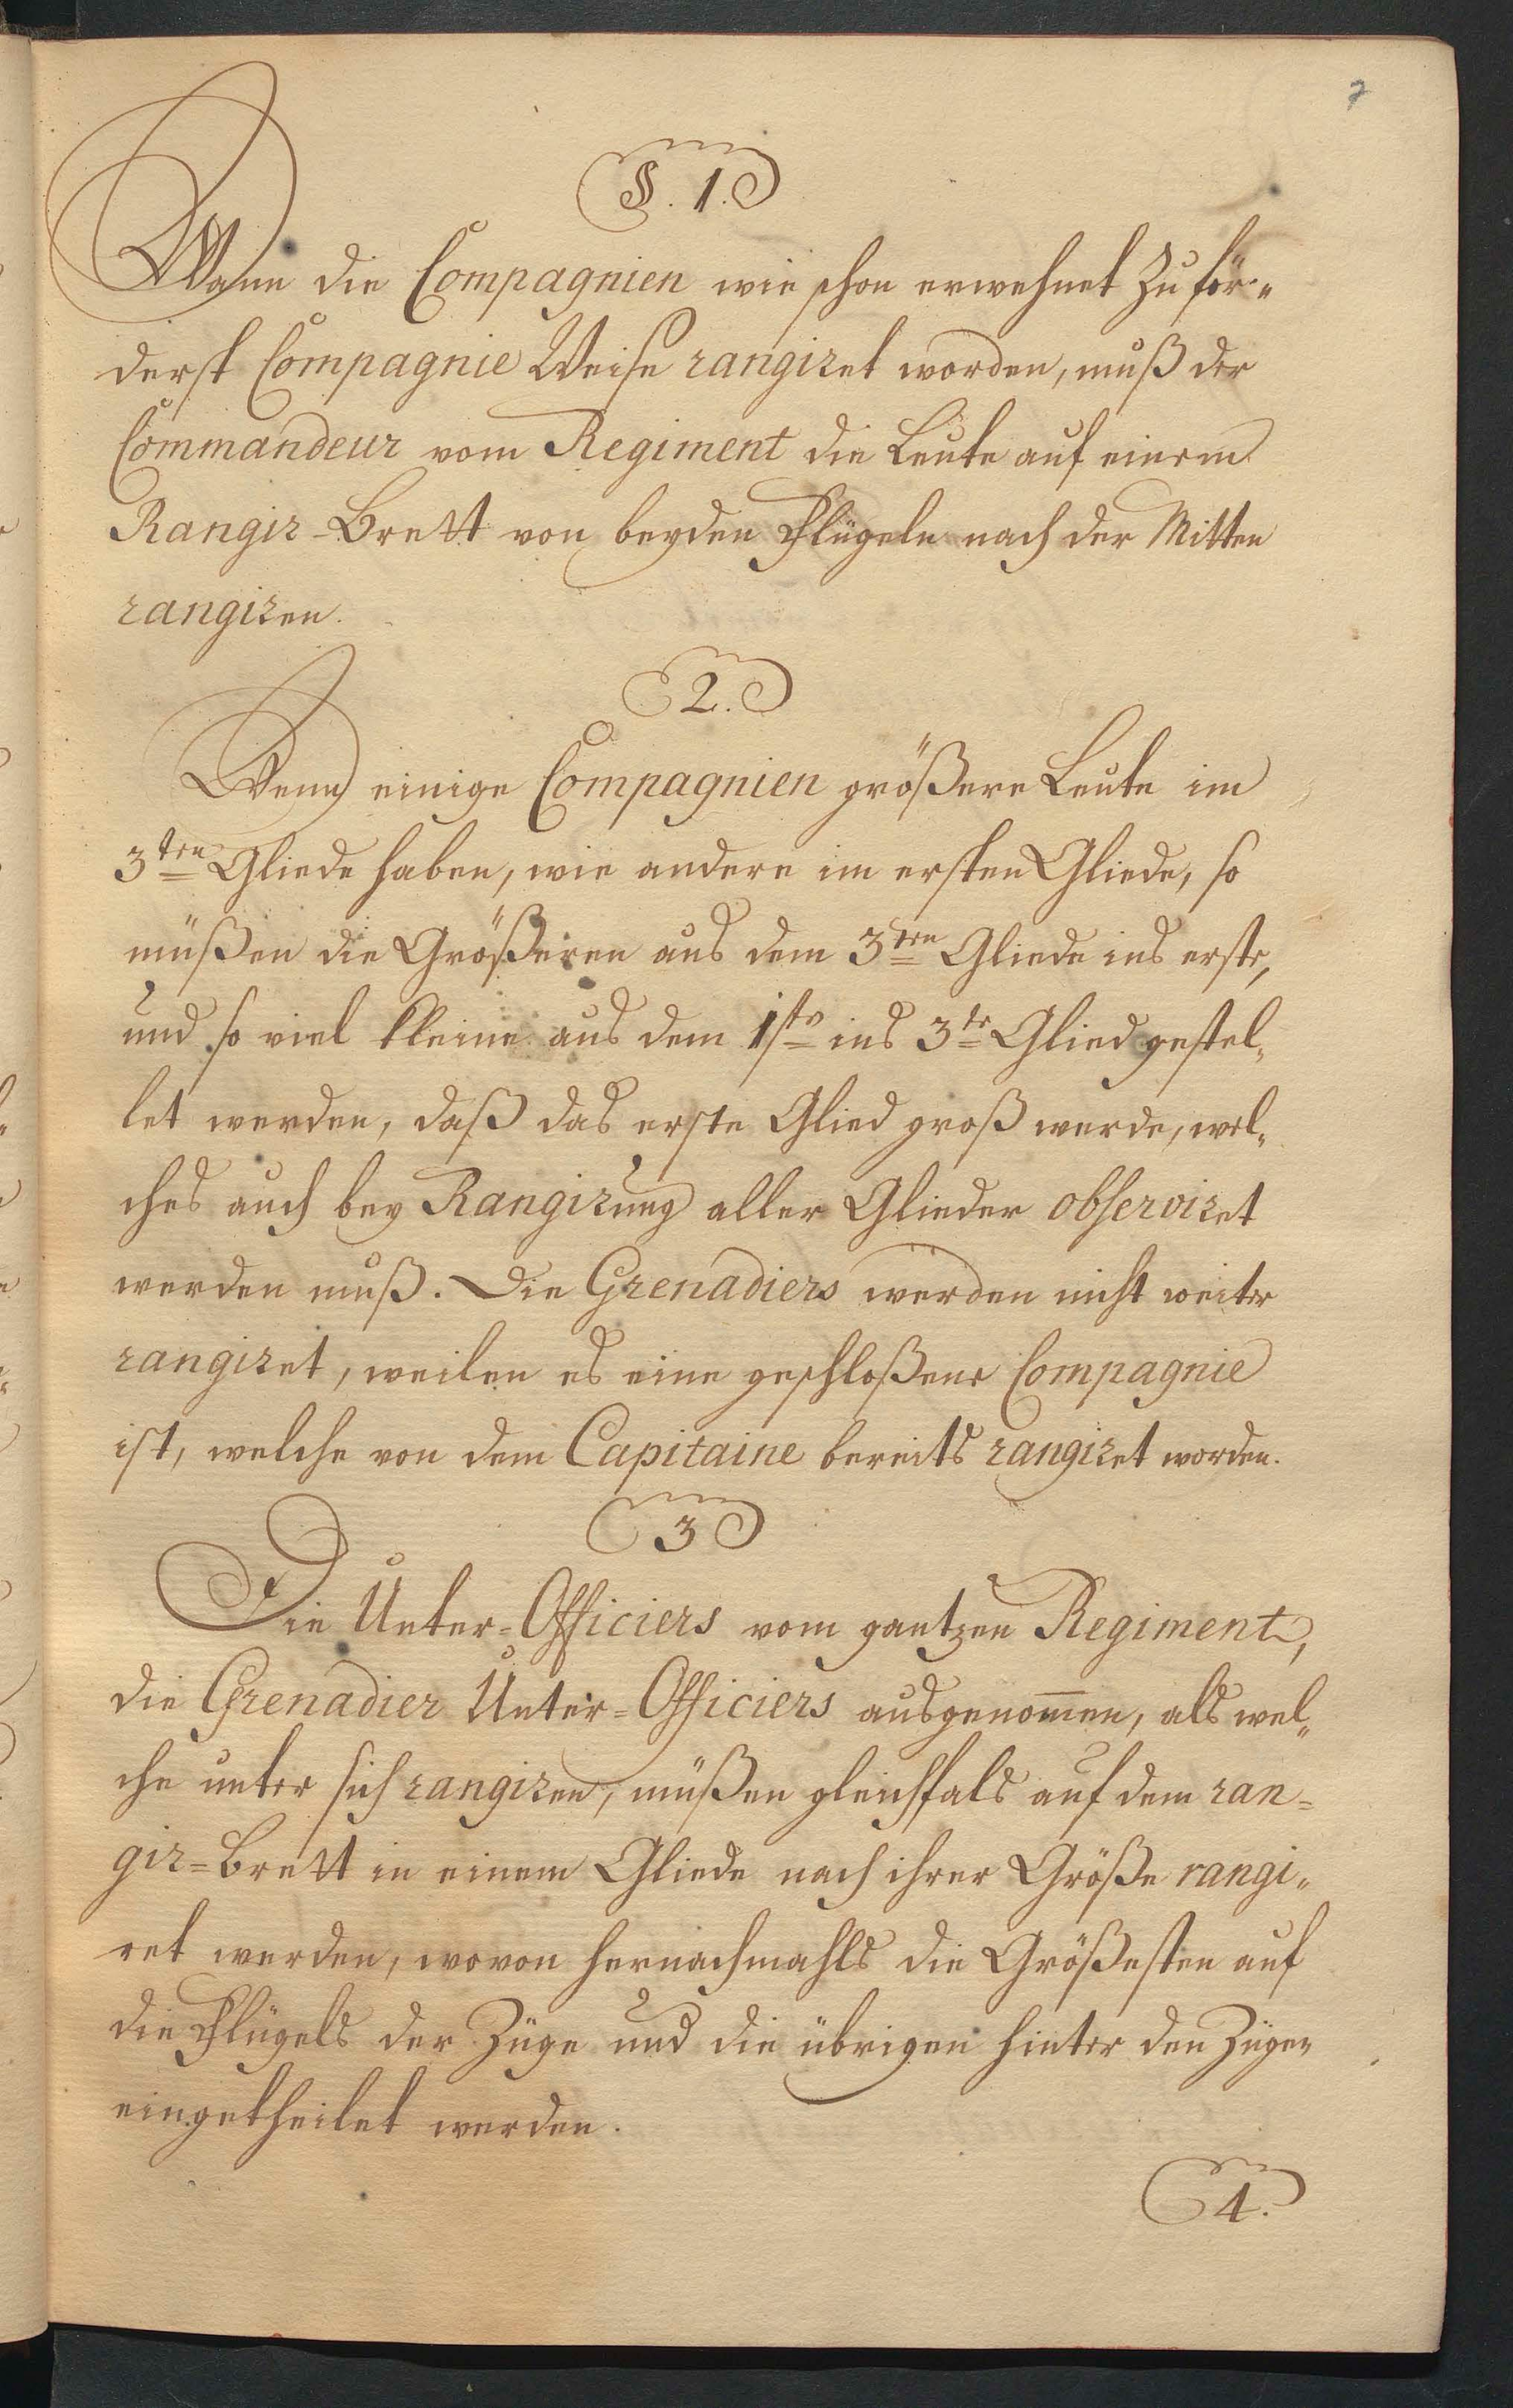 7
§. 1.
Wann die Compagnien wie schon erwehnet zuför-
derst Compagnie Weise rangiret worden, muß der
Commandeur vom Regiment die Leute auf einem
Rangir-Brett von beyden Flügeln nach der Mitten
rangiren.
2.
Wenn einige Compagnien größere Leute im
3ten Gliede haben, wie andere im ersten Gliede, so
müßen die Größeren aus dem 3ten Gliede ins erste,
und so viel kleine aus dem 1sten ins 3te Glied gestel-
let werden, daß das erste Glied groß werde, wel-
ches auch bey Rangirung aller Glieder observiret
werden muß. Die Grenadiers werden nicht weiter
rangiret, weilen es eine geschloßene Compagnie
ist, welche von dem Capitaine bereits rangiret worden.
3
Die Unter-Officiers vom gantzen Regiment,
die Grenadier Unter-Officiers ausgenom̅en, als wel-
che unter sich rangiren, müßen gleichfals auf dem ran-
gir-Brett in einem Gliede nach ihrer Größe rangi-
ret werden, wovon hernachmahls die Größesten auf
die Flügels der Züge und die übrigen hinter den Zügen
eingetheilet werden.
4.